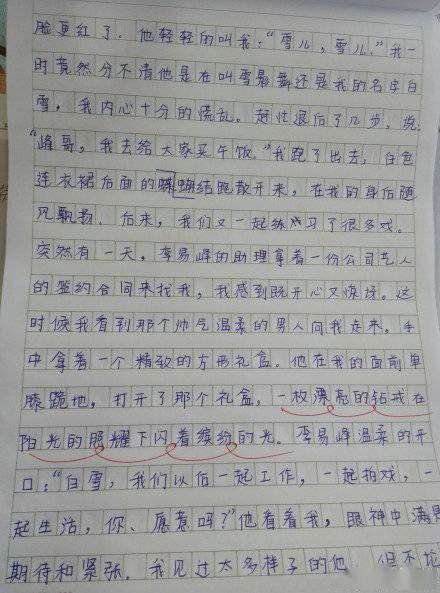 脸更红了。他轻轻的叫我:“雪儿,雪儿。”我一
时竟然分不清他是在叫雪晨舞还是我的名字白
雪,我内心十分的慌乱。赶忙退后了几步,说
“峰哥,我去给大家买午饭。”我跑了出去,白色
连衣裙后面的蝴蝶结跑散开来,在我的身后随
风飘扬。后来,我们又一起练习了很多戏。
突然有一天,李易峰的助理拿着一份公司艺人
的签约合同来找我,我感到既开心又惊讶。这
时候我看到那个帅气温柔的男人向我走来,手
中拿着一个精致的方形礼盒。他在我的面前单
膝跪地,打开了那个礼盒,一枚漂亮的钻戒在
阳光的照耀下闪着缤纷的光。李易峰温柔的开
口:“白雪,我们以后一起工作,一起拍戏,一
起生活,你、愿意吗?”他看着我,眼神中满是
期待和紧张。我见过太多样子的他,但不论